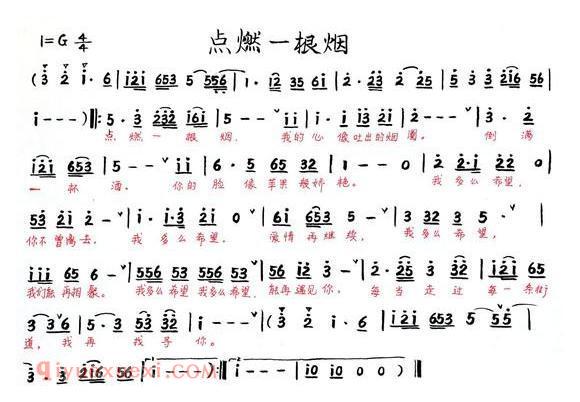 1=G 4/4 点燃一根烟
(3 2 i·6 | i2i 653 5 5556 | i·i2 35 6i | 2·23 2 25 | 5 3 3 2i6 56 |
i---)‖:5·3 232 i6i | 5--ˇii | i·i i32i | 2---ˇ| 3·2
点 燃 一 根 烟, 我的 心 像吐出的烟圈。 倒 满
i2i 653 | 5--ii | 6·5 65 32 | 1--0 | 2 2·i 22 0 |
一 杯 酒。 你的 脸 像 苹果 般娇艳。 我 多么 希望,
53 2i 2-ˇ| i·i·3 2i 0ˇ| 6i 653 5-ˇ| 3 32 3 5-ˇ|
你不 曾离去。 我 多么 希望, 爱情 再继续, 我 多么 希望,
iii 65 6-ˇ| 556 53 556 53ˇ| 556 53 i-ˇ| 2·25 3 22 | i2i 65
我们能 再相 聚。 我多么 希望 我多么 希望, 能再 遇见 你。 每 当 走 过 每一 条街
3 3ˇ6 | 5·3 53 32 | i---ˇ|(3 2 i·6 | i2i 653 5 55ˇ|
道, 我 再 我 寻 你。
3·3 2i6 56 | i---):‖ i--- | i0 i0 0 0 )‖
qiyuexuexi.com